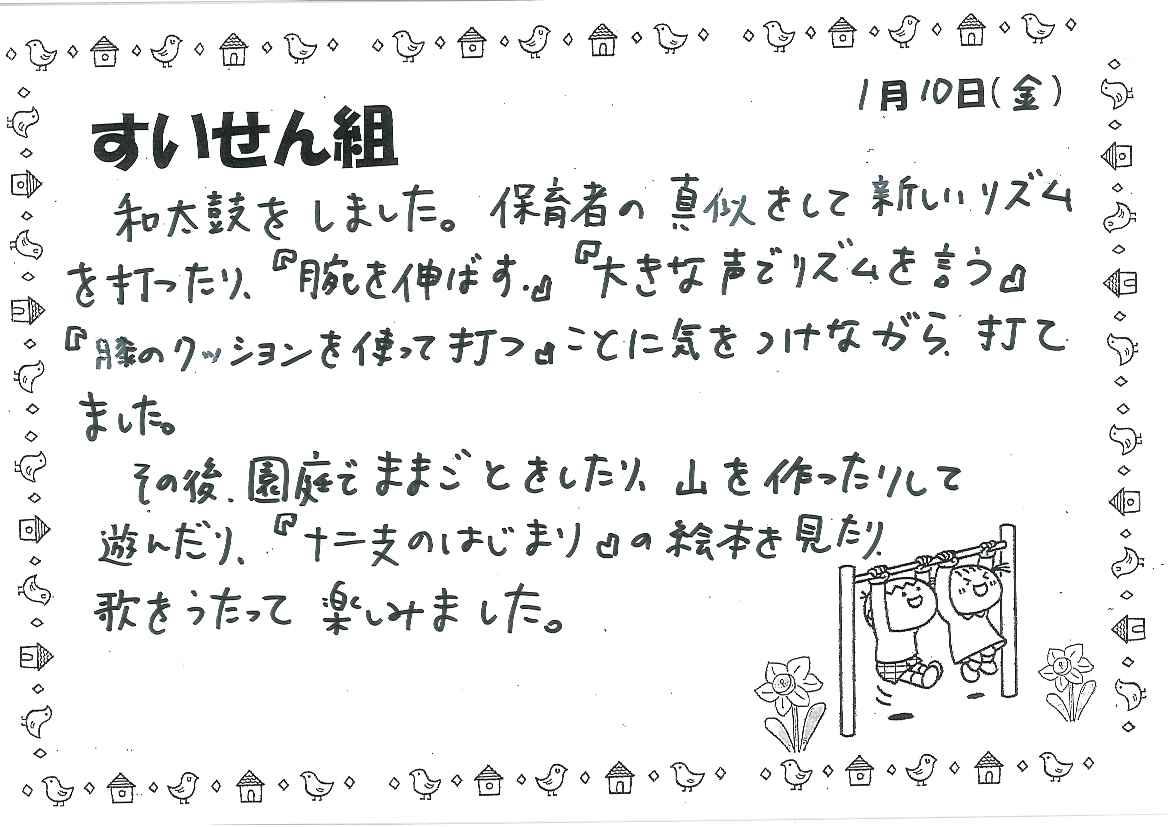 1月10日(金)
すいせん組
和太鼓をしました。保育者の真似をして新しいリズム
を打ったり、『腕を伸ばす。』『大きな声でリズムを言う』
『膝のクッションを使って打つ』ことに気をつけながら、打て
ました。
その後、園庭でままごとをしたり、山を作ったりして
遊んだり、『十二支のはじまり』の絵本を見たり、
歌をうたって楽しみました。